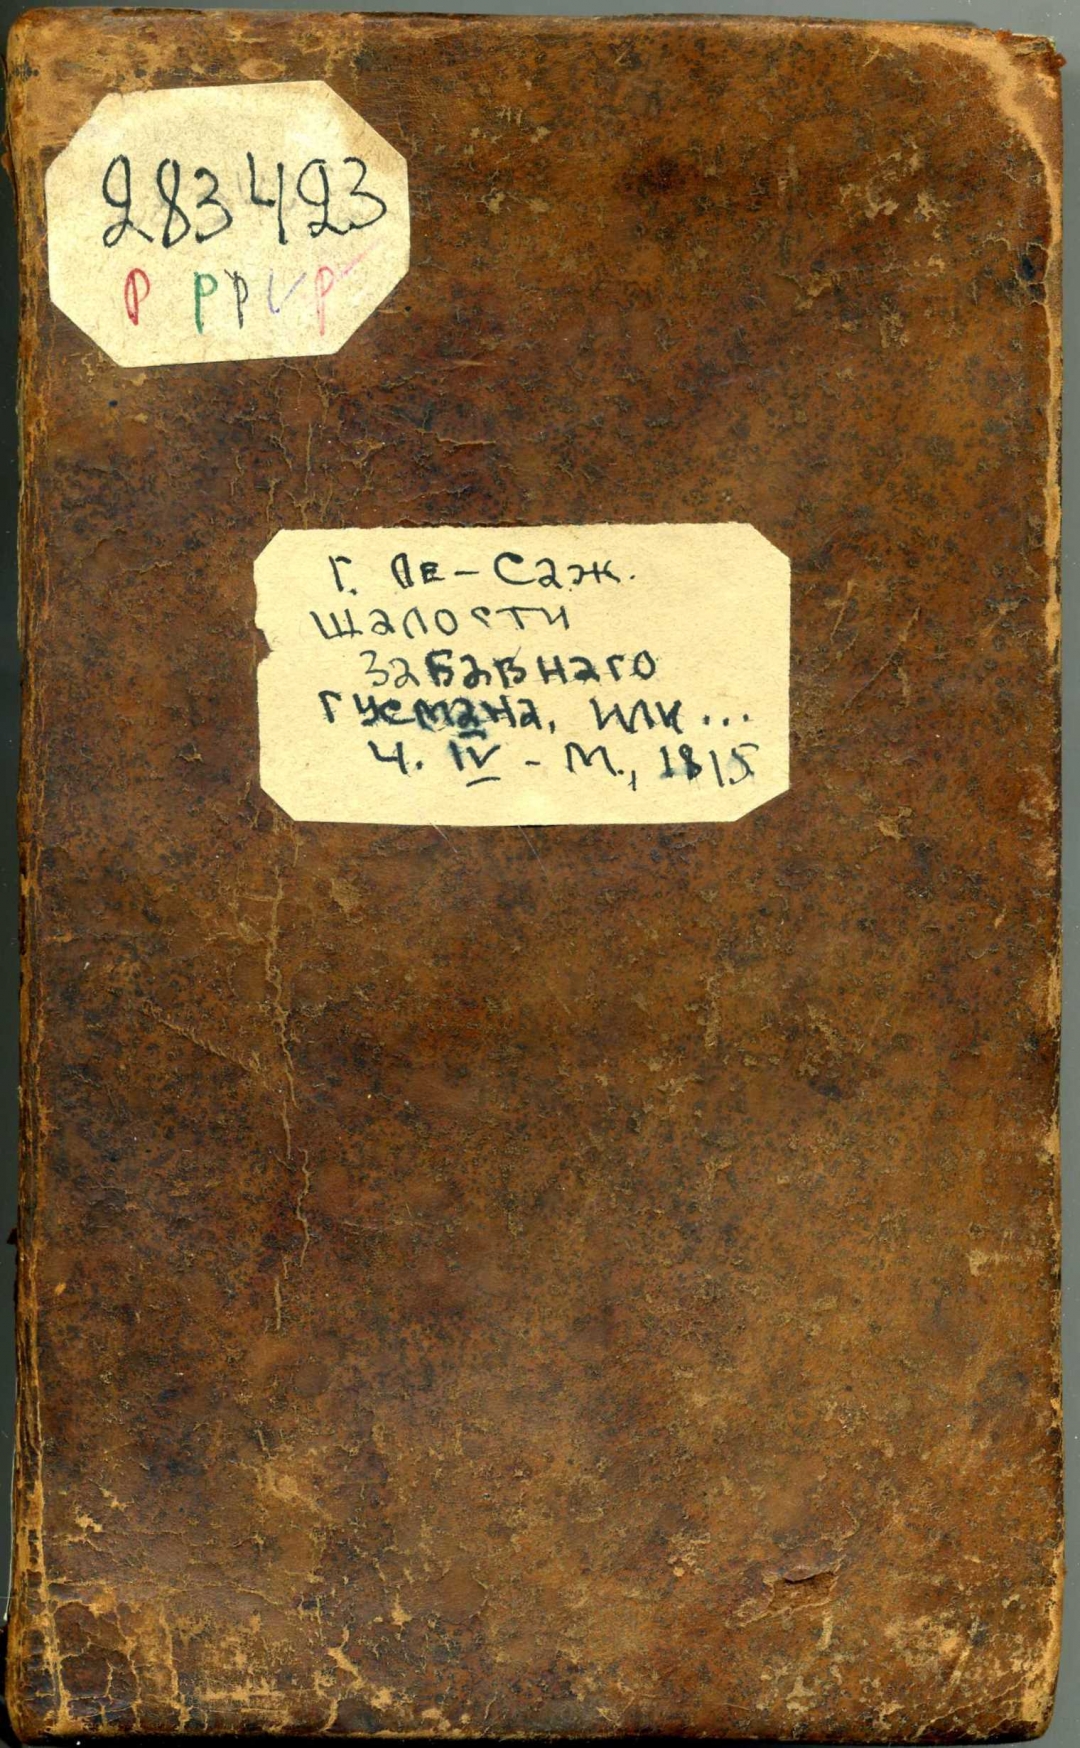 283423
р р р V р
Г. Ле-Саж.
Шалости
забавнаго
Гусмана, или...
Ч. IV - М., 1815